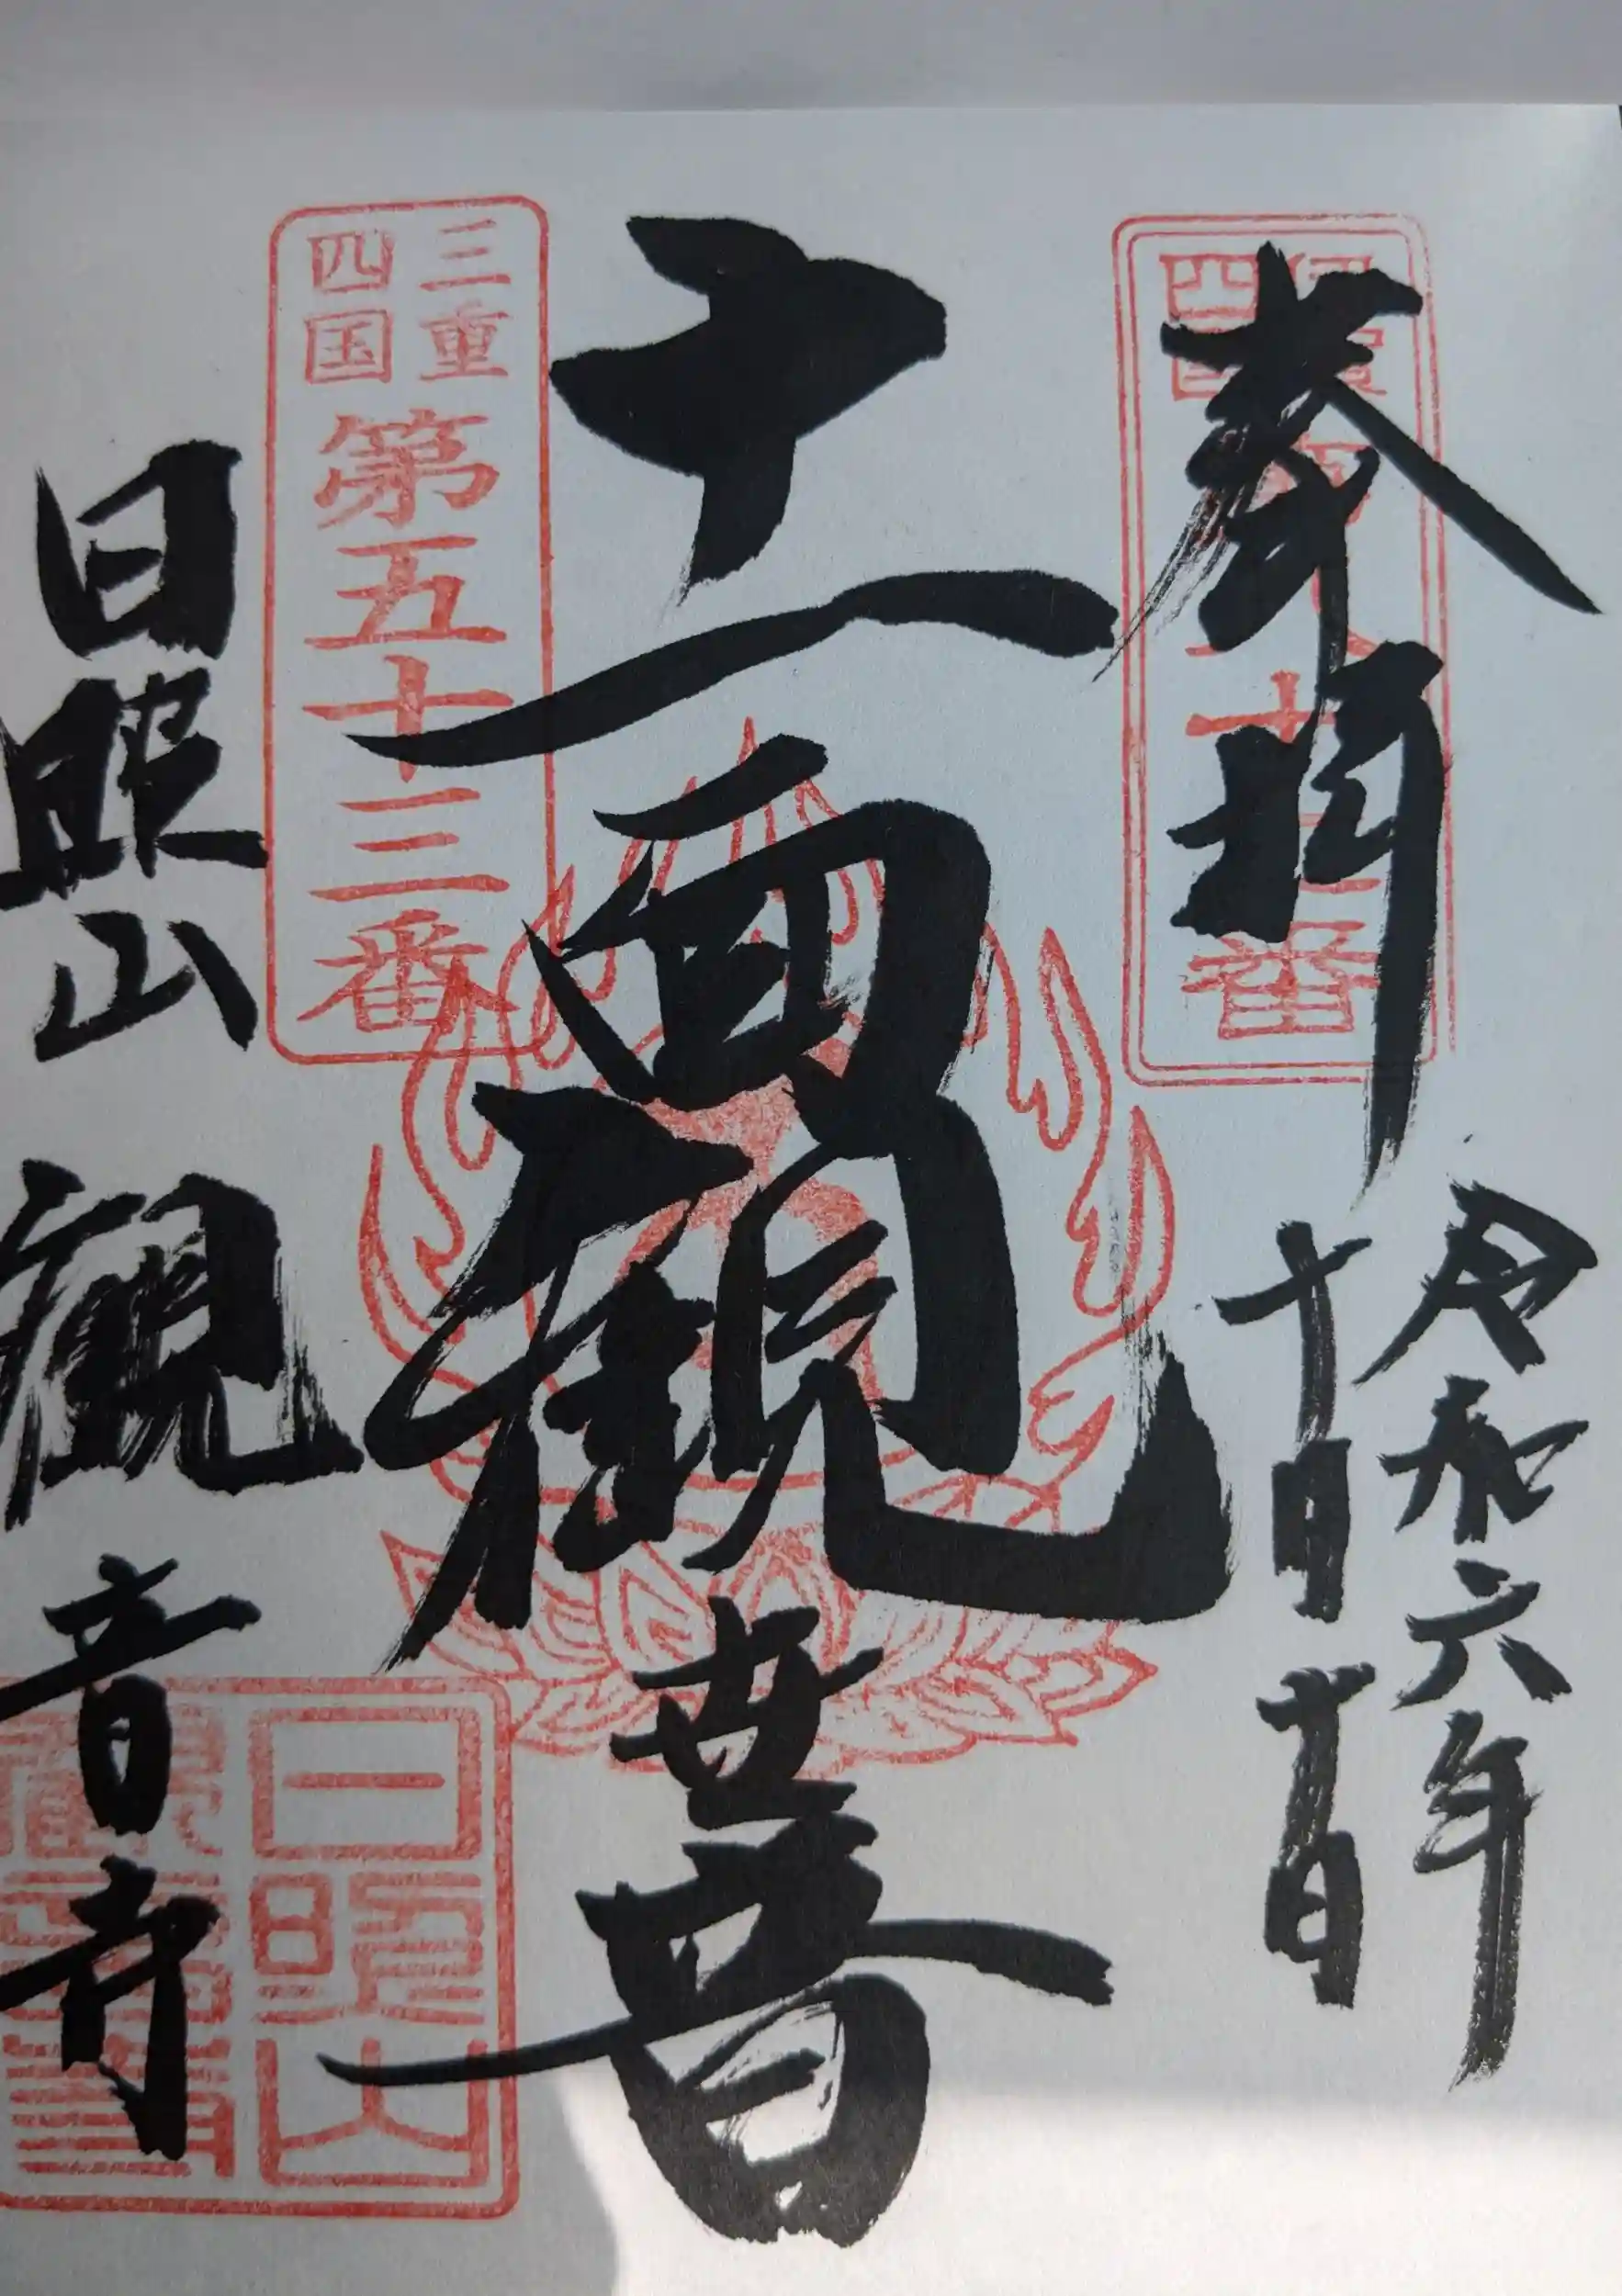 奉拝
四国
番
令和六年
十月十日
十一面観世音
三重
四国
第五十三番
日照山　観音寺
日照山